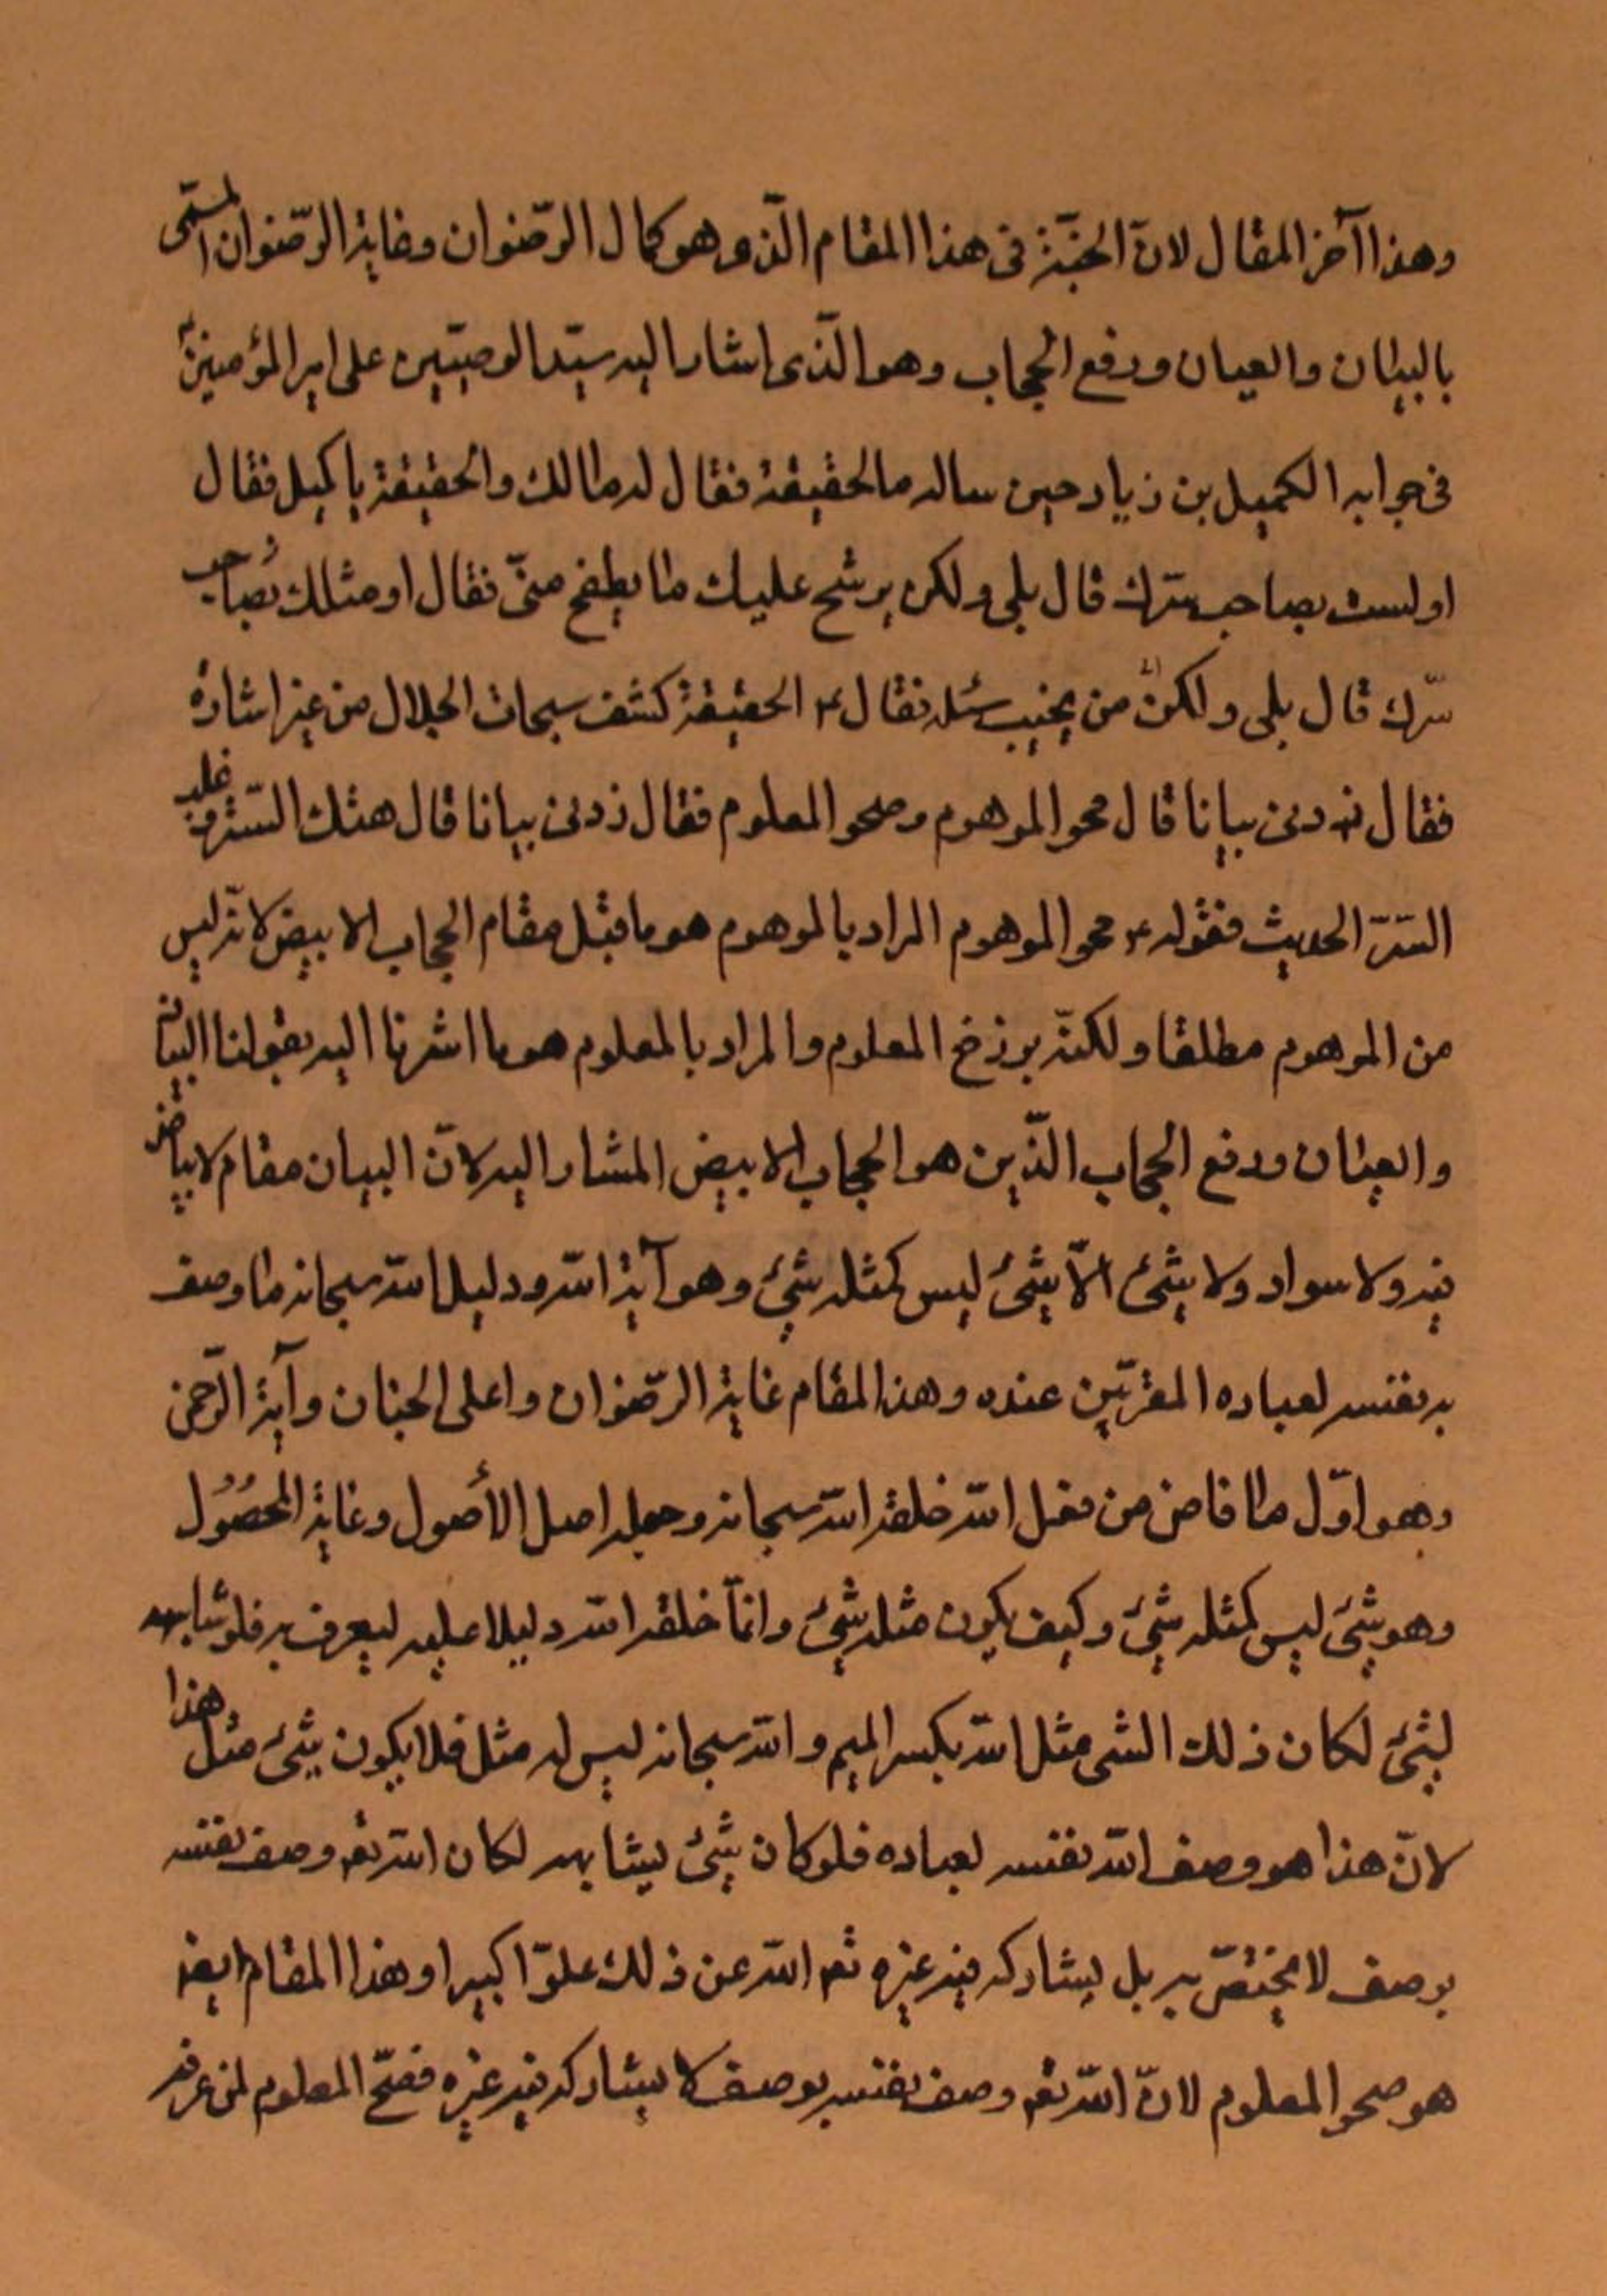 وهذا آخر المقال لانّ الجنّة فى هذا المقام الّذى هو كمال الرّضوان وغاية الرّضوان المسمّى
بالبيان والعيان ورفع الحجاب وهو الّذى اشار اليه سيّد الوصيّين على امير المؤمنين ع
فى جوابه الكميل بن زياد حين ساله ما الحقيقة فقال له مالك والحقيقة يا كميل فقال
اولست بصاحب سرّك قال بلى ولكن يرشح عليك ما يطفح منّى فقال او مثلك بصاحب
سرّك قال بلى ولكن من يجيب سئله فقال ع الحقيقة كشف سبحات الجلال من غير اشارة
فقال زدنى بيانا قال محو الموهوم وصحو المعلوم فقال زدنى بيانا قال هتك السّتر لغلبة
السّرّ الحديث فقوله ع محو الموهوم المراد بالموهوم هو ما قبل مقام الحجاب الابيض لانّه ليس
من الموهوم مطلقا ولكنّه برزخ المعلوم والمراد بالمعلوم هو ما اشرنا اليه بقولنا البيان
والعيان ورفع الحجاب الّذين هو الحجاب الابيض المشار اليه لانّ البيان مقام لا بياض
فيه ولا سواد ولا شئ الّا شئ ليس كمثله شئ وهو آية الله ودليل الله سبحانه ما وصف
به نفسه لعباده المقرّبين عنده وهذا المقام غاية الرّضوان واعلى الجنان وآية الرّحمن
وهو اوّل ما فاض من فعل الله خلقه الله سبحانه وجعله اصل الأصول وغاية المحصُول
وهو شئ ليس كمثله شئ وكيف يكون مثله شئ وانّما خلقه الله دليلا عليه ليعرف به فلو شابهه
لشئ لكان ذلك الشى مثل الله بكسر الميم والله سبحانه ليس له مثل فلا يكون شئ مثل هذا
لانّ هذا هو وصف الله نفسه لعباده فلو كان شئ يشابهه لكان الله تع وصف نفسه
بوصف لا يختصّ به بل يشاركه فيه غيره تع الله عن ذلك علوّا كبيرا وهذا المقام ايضا
هو صحو المعلوم لانّ الله تع وصف نفسه بوصف لا يشاركه فيه غيره فصحّ المعلوم لمن عرفه